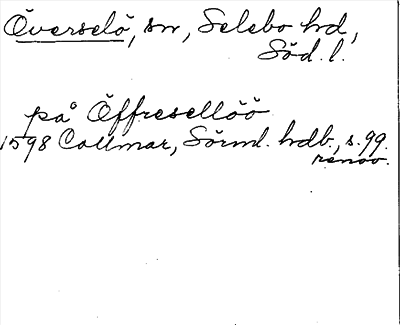 Överselö, sn, Selebo hd,
Söd. l.
på Öffresellöö
1598 Collmar, Sörml. hdb., s. 99.
renov.